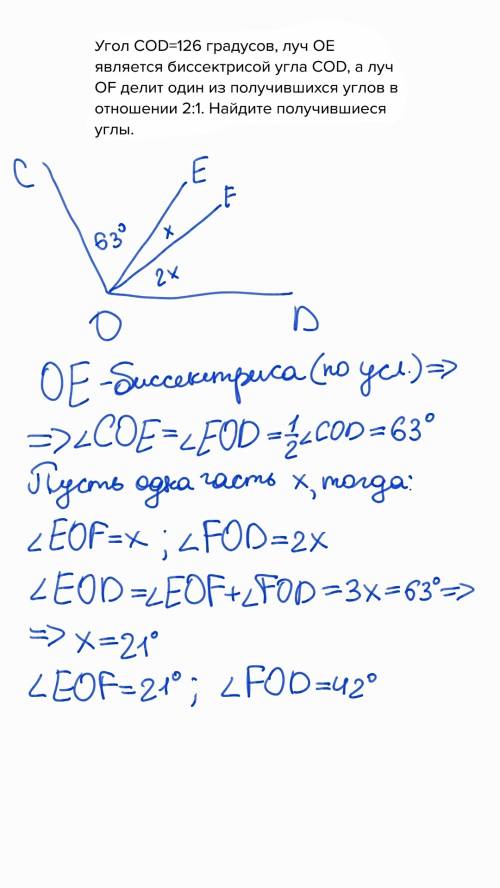 Угол COD=126 градусов, луч OE
является биссектрисой угла COD, а луч
OF делит один из получившихся углов в
отношении 2:1. Найдите получившиеся
углы.
C
E
F
63°
x
2x
O
D
OE - биссектриса (по усл.) =>
=> ∠COE = ∠EOD = 1/2 ∠COD = 63°
Пусть одна часть x, тогда:
∠EOF = x ; ∠FOD = 2x
∠EOD = ∠EOF + ∠FOD = 3x = 63° =>
=> x = 21°
∠EOF = 21° ; ∠FOD = 42°